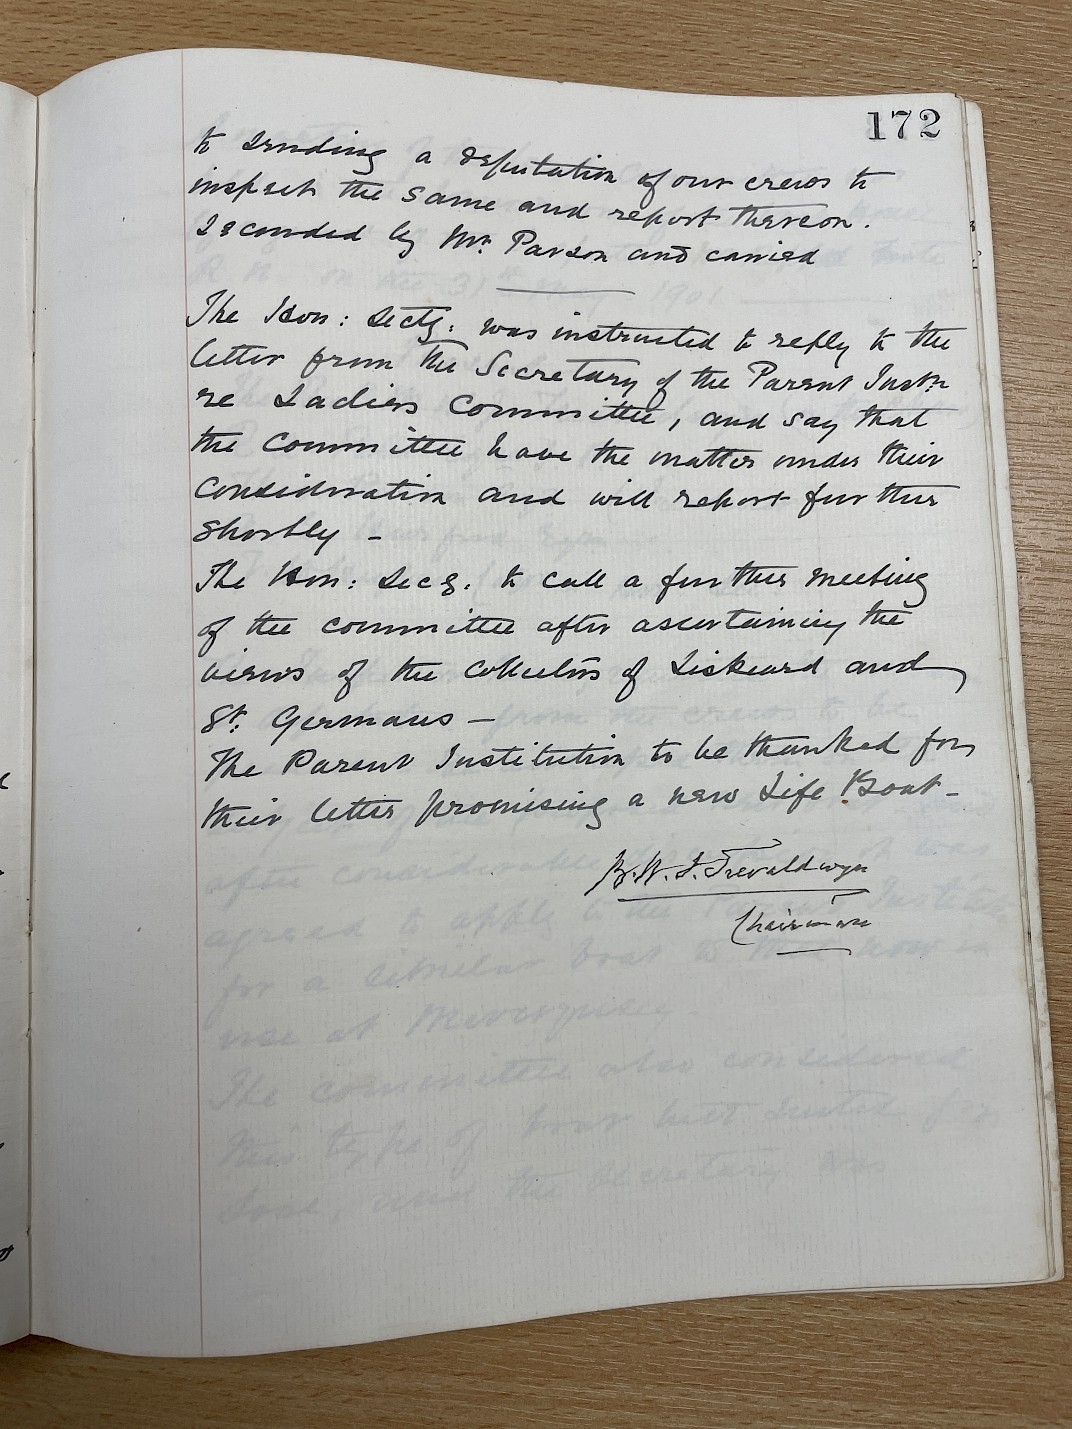 172
to sending a deputation of our crews to
inspect the same and report thereon.
Seconded by Mr. Parson and carried
The Hon: Secty. was instructed to reply to the
letter from the Secretary of the Parent Instn.
re Ladies Committee, and say that
the Committee have the matter under their
Consideration and will report further
shortly -
The Hon: Secy. to call a further meeting
of the committee after ascertaining the
views of the Collectors of Liskeard and
St. Germans -
The Parent Institution to be thanked for
their letter promising a new Life Boat -
Trevaldwyn
Chairman